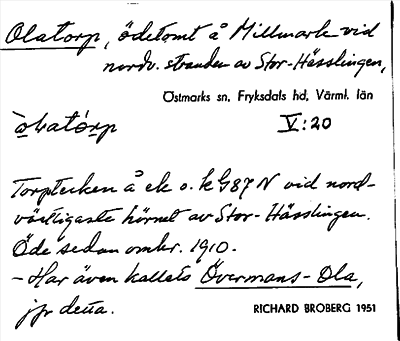 Olatorp, ödetomt å Millmark vid
nordv. stranden av Stor-Hässlingen,
Östmarks sn, Fryksdals hd, Värml. län
òlatórp V:20
Torptecken å ek o. k G87N vid nord-
västligaste hörnet av Stor-Hässlingen.
Öde sedan omkr. 1910.
- Har även kallats Övermans-Ola,
jfr detta.
RICHARD BROBERG 1951